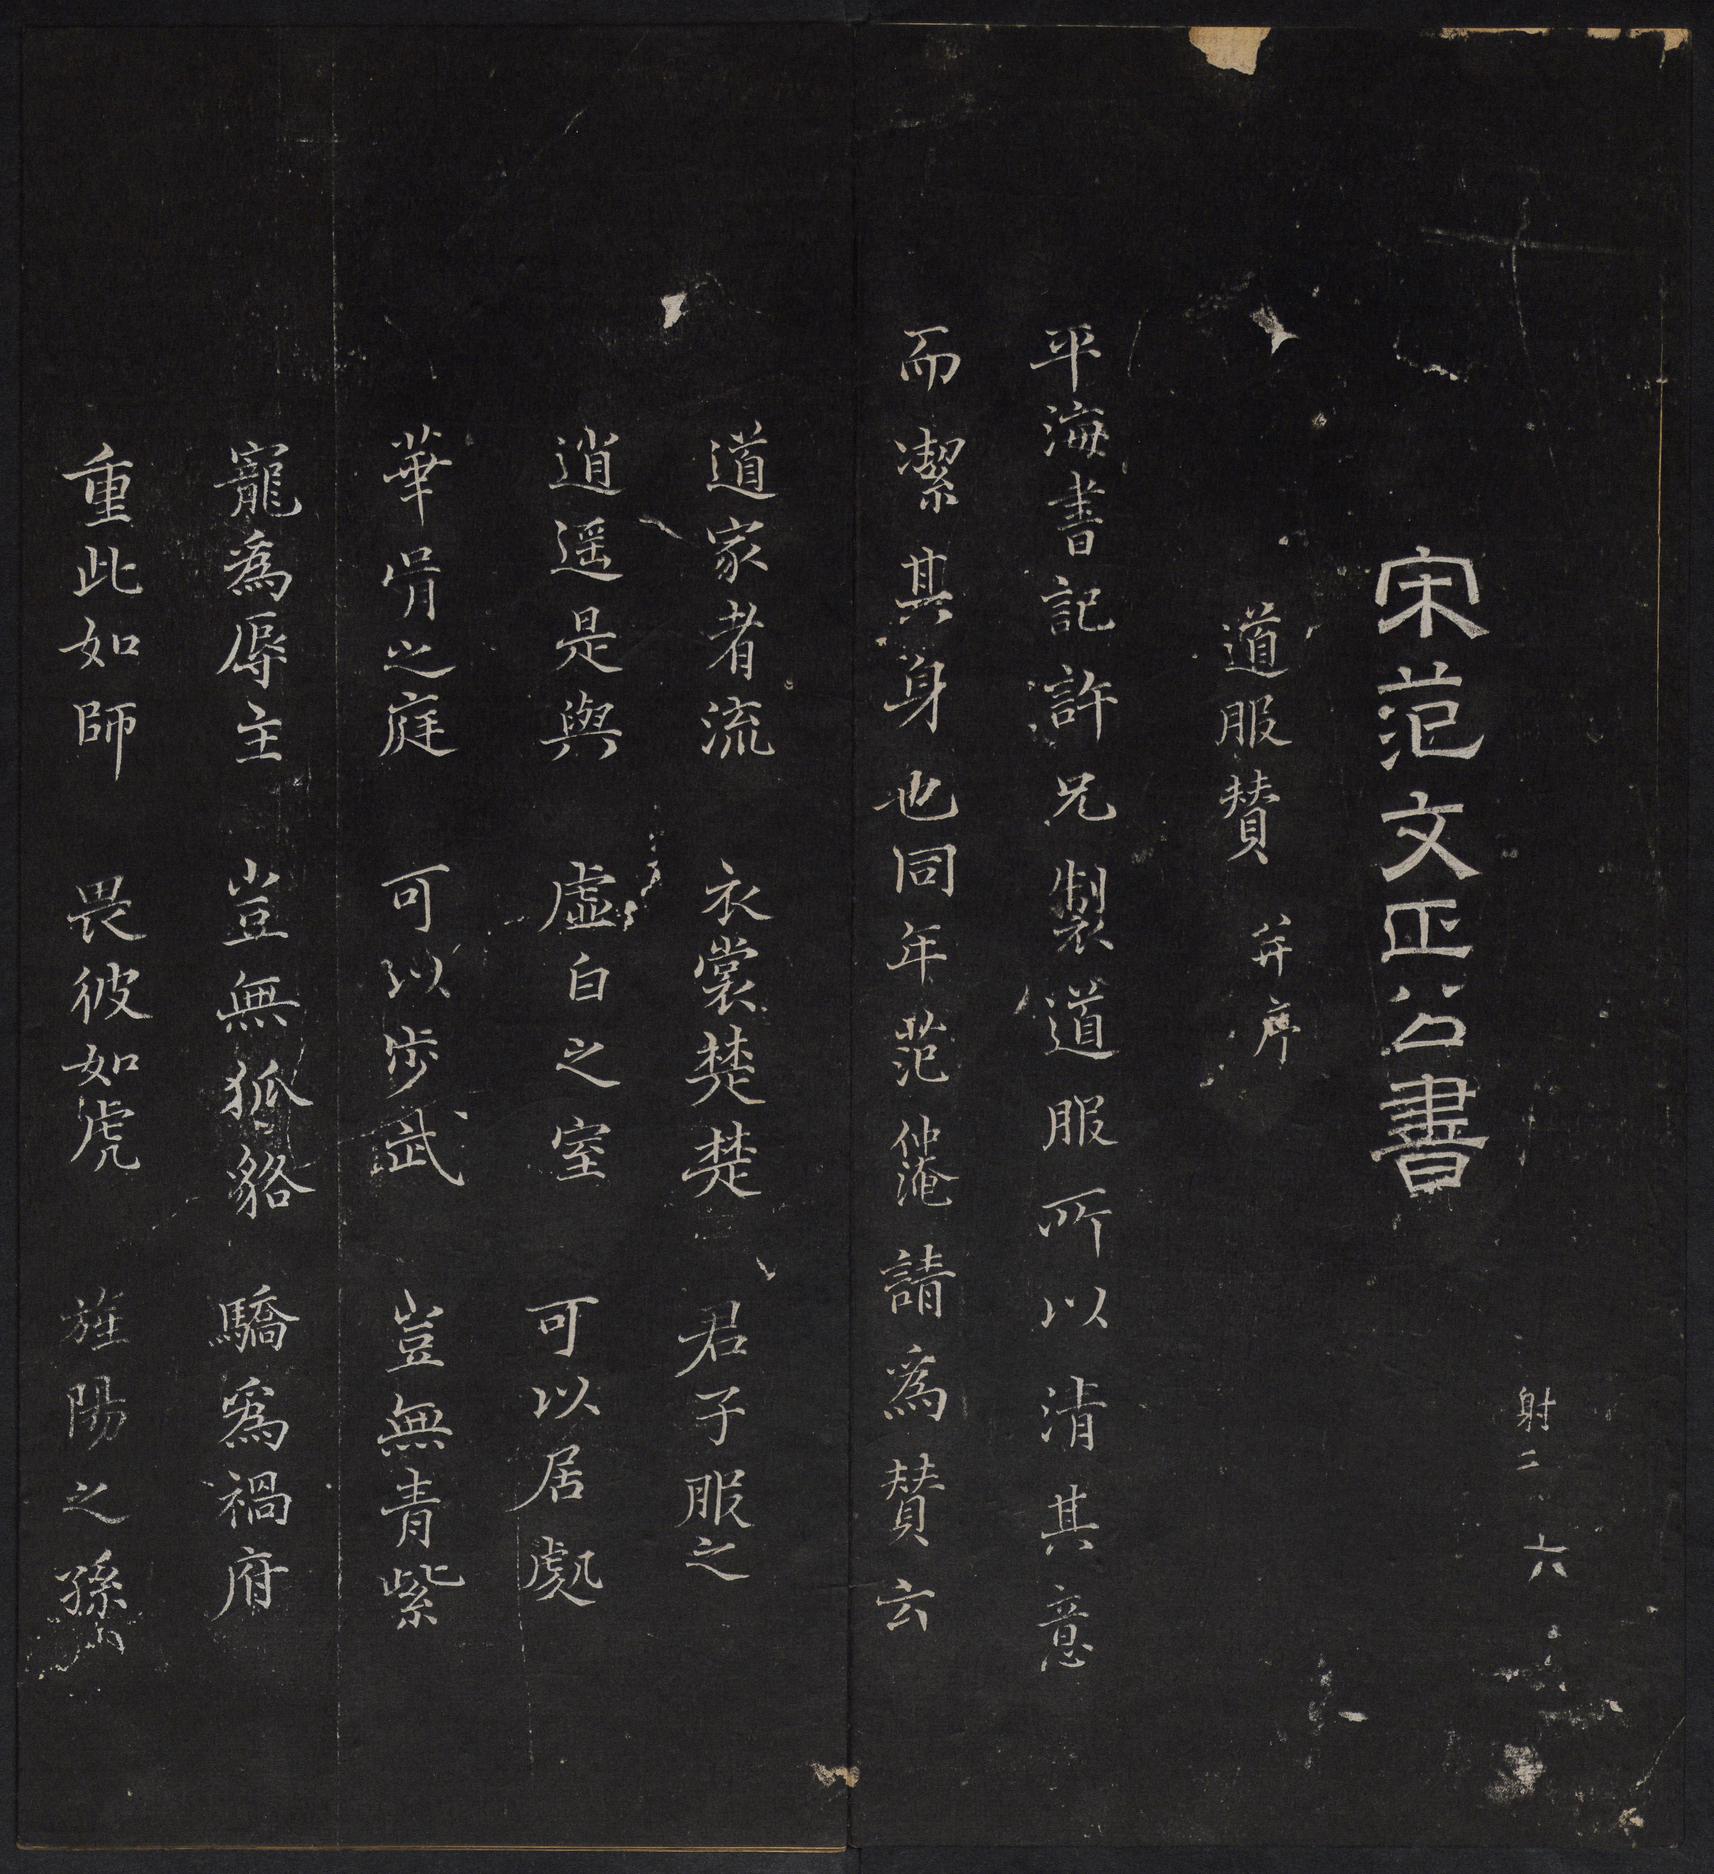 射二 六
宋范文正公書
道服賛 并序
平海書記許兄製道服所以清其意
而潔其身也同年范仲淹請為賛云
道家者流 衣裳楚楚 君子服之
逍遥是與 虛白之室 可以居處
華胥之庭 可以步武 豈無青紫
寵為辱主 豈無狐貉 驕為禍府
重此如師 畏彼如虎 旌陽之孫